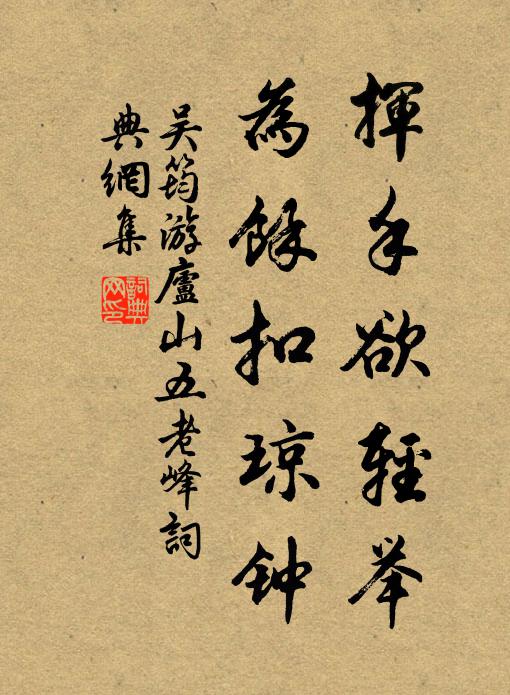 揮手欲輕举
為餘扣琼钟
吴筠游廬山五老峰詞
典網集
詞典网印